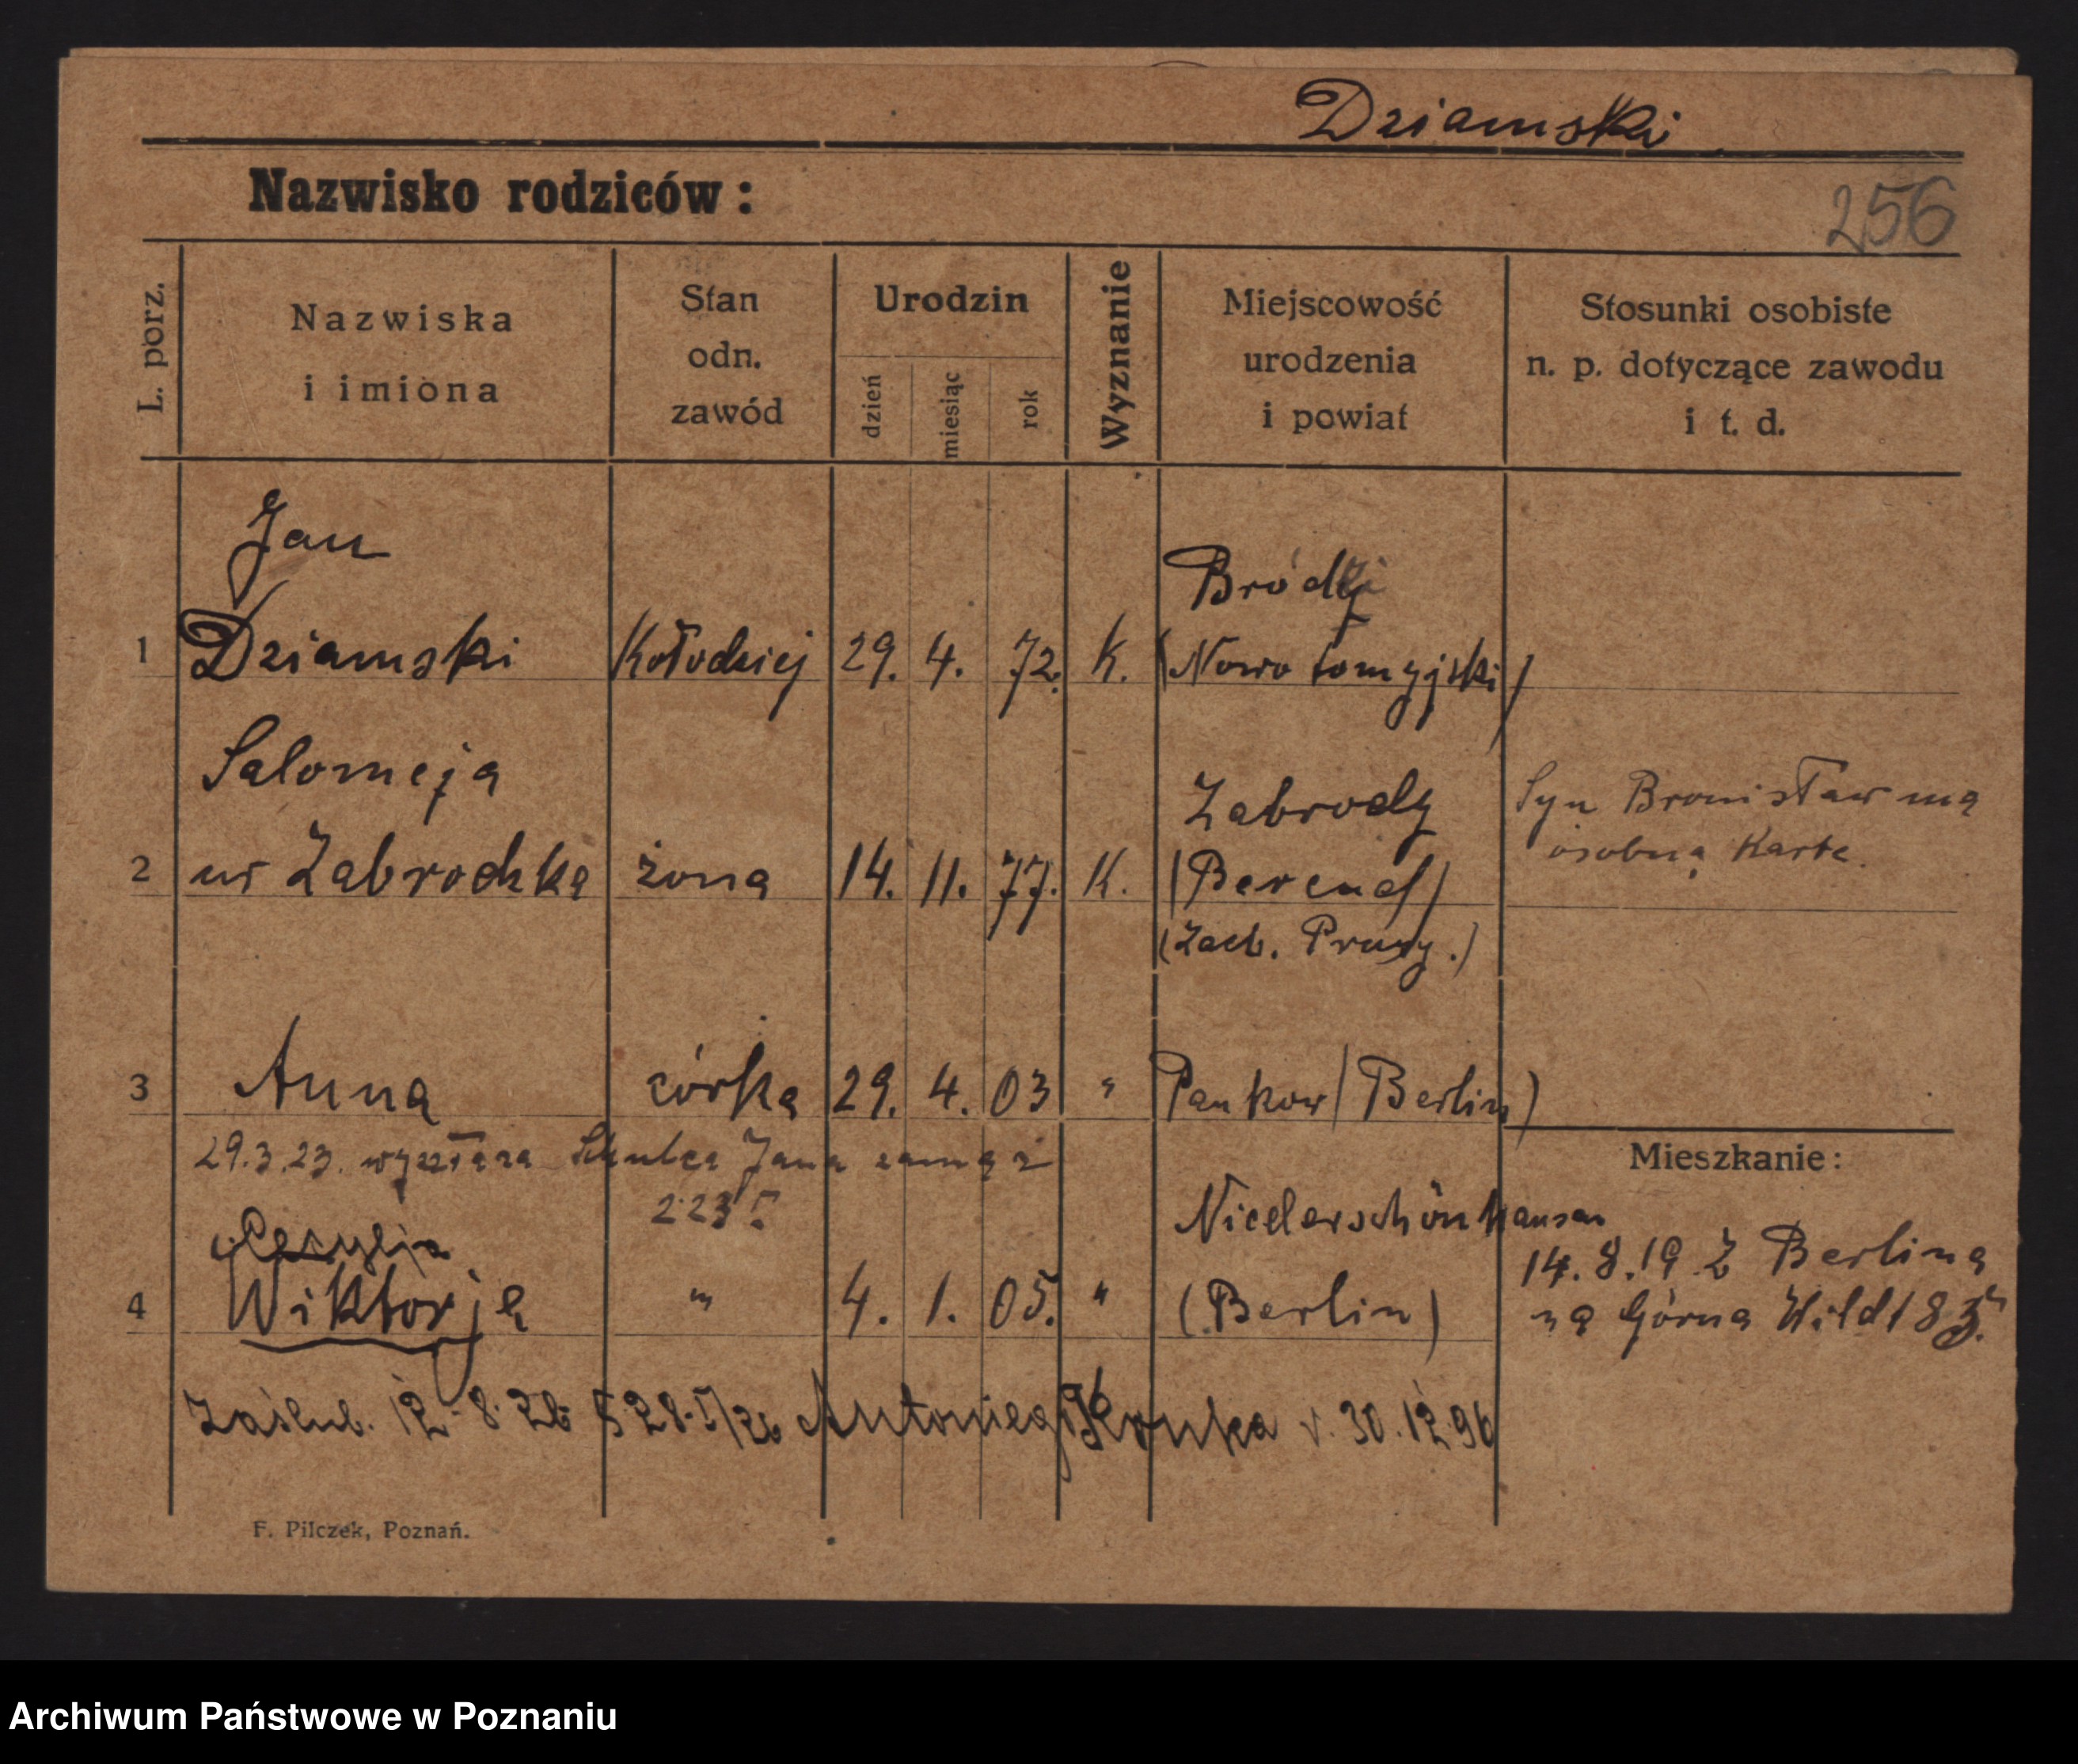 Dziamski
Nazwisko rodziców:
256
L. porz.
Nazwiska
i imiona
Stan
odn.
zawód
Urodzin
dzień
miesiąc
rok
Wyznanie
Miejscowość
urodzenia
i powiat
Stosunki osobiste
n. p. dotyczące zawodu
i t. d.
Jan
Bródki
1 Dziamski Kołodziej 29. 4. 72. K. (Nowo tomyjski)
Salomeja
Zabrody
Syn Bronisław ma
osobną Kartę.
2 ur Zabrodzka żona 14. 11. 77. K. (Berend)
(Zach. Prusy.)
3 Anna córka 29. 4. 03 " Pankow (Berlin)
29.3.23. wyszła za Schulca Jana zamąż
2.23
Mieszkanie:
Niederschönhausen
14.8.19 Z Berlina
na Górna Wilda 83.
4 Wiktorja " 4. 1. 05. " (Berlin)
Zaślub. 12.8.26 528.I/26 Antoniego v. 30.12.96
F. Pilczek, Poznań.
Archiwum Państwowe w Poznaniu